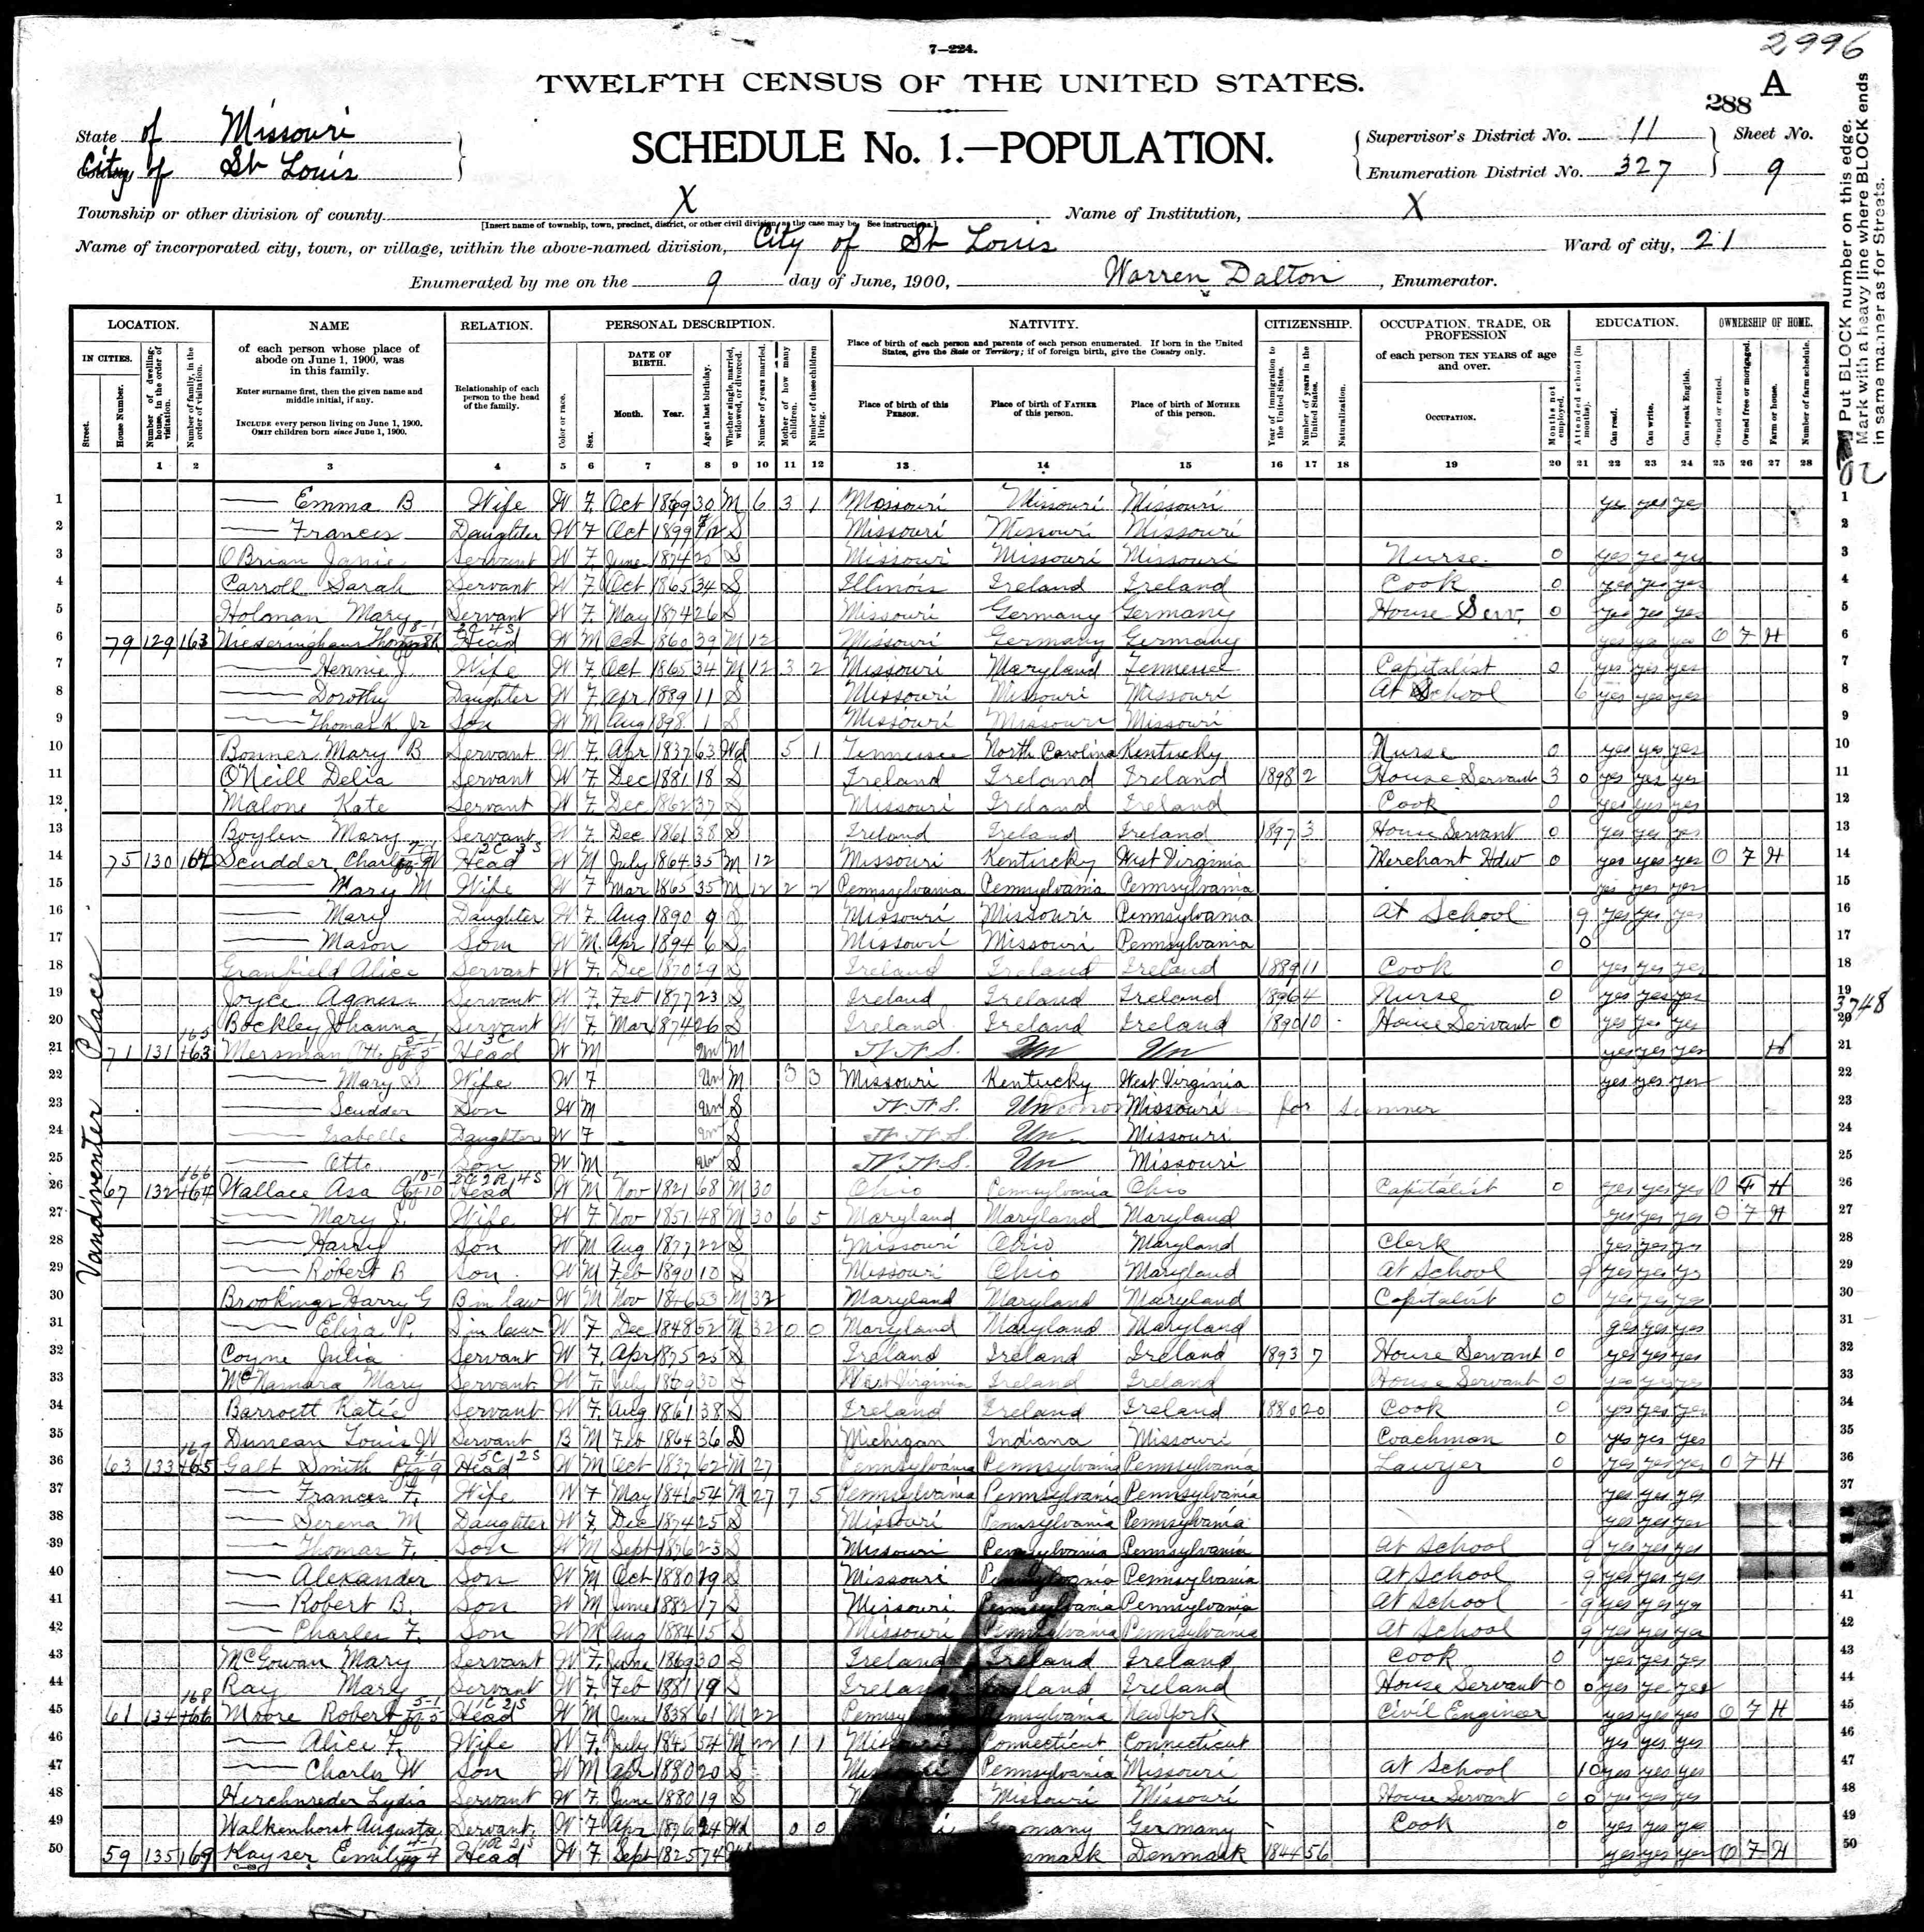 7—224.
2996
TWELFTH CENSUS OF THE UNITED STATES.
288 A
State of Missouri
City of St Louis
SCHEDULE No. 1.—POPULATION.
Supervisor's District No. 11
Enumeration District No. 327
Sheet No. 9
Township or other division of county X Name of Institution, X
[Insert name of township, town, precinct, district, or other civil division, as the case may be. See instructions.]
Name of incorporated city, town, or village, within the above-named division, City of St Louis Ward of city, 21
Enumerated by me on the 9 day of June, 1900, Warren Dalton, Enumerator.
Put BLOCK number on this edge.
Mark with a heavy line where BLOCK ends
in same manner as for Streets.
LOCATION. NAME RELATION. PERSONAL DESCRIPTION. NATIVITY. CITIZENSHIP. OCCUPATION, TRADE, OR PROFESSION EDUCATION. OWNERSHIP OF HOME.
IN CITIES. Street. House Number. Number of dwelling-house, in the order of visitation. Number of family, in the order of visitation.
of each person whose place of abode on June 1, 1900, was in this family.
Enter surname first, then the given name and middle initial, if any.
INCLUDE every person living on June 1, 1900. OMIT children born since June 1, 1900.
Relationship of each person to the head of the family.
Color or race. Sex. DATE OF BIRTH. Month. Year. Age at last birthday. Whether single, married, widowed, or divorced. Number of years married. Mother of how many children. Number of these children living.
Place of birth of each person and parents of each person enumerated. If born in the United States, give the State or Territory; if of foreign birth, give the Country only.
Place of birth of this PERSON. Place of birth of FATHER of this person. Place of birth of MOTHER of this person.
Year of immigration to the United States. Number of years in the United States. Naturalization.
of each person TEN YEARS of age and over.
OCCUPATION. Months not employed.
Attended school (in months). Can read. Can write. Can speak English.
Owned or rented. Owned free or mortgaged. Farm or house. Number of farm schedule.
1 2 3 4 5 6 7 8 9 10 11 12 13 14 15 16 17 18 19 20 21 22 23 24 25 26 27 28
Vandeventer Place
1 — Emma B Wife W F Oct 1869 30 M 6 3 1 Missouri Missouri Missouri yes yes yes 1
2 — Frances Daughter W F Oct 1899 S Missouri Missouri Missouri 2
3 O'Brian Janie Servant W F June 1874 25 S Missouri Missouri Missouri Nurse 0 yes yes yes 3
4 Carroll Sarah Servant W F Oct 1865 34 S Illinois Ireland Ireland Cook 0 yes yes yes 4
5 Holman Mary Servant W F May 1874 26 S Missouri Germany Germany House Serv. 0 yes yes yes 5
6 79 129 163 Niederinghaus Thomas K Head W M Oct 1860 39 M 12 Missouri Germany Germany yes yes yes O F H 6
7 — Hennie J. Wife W F Oct 1865 34 M 12 3 2 Missouri Maryland Tennessee Capitalist 0 yes yes yes 7
8 — Dorothy Daughter W F Apr 1889 11 S Missouri Missouri Missouri At School 6 yes yes yes 8
9 — Thomas K Jr Son W M Aug 1898 1 S Missouri Missouri Missouri 9
10 Bonner Mary B Servant W F Apr 1837 63 Wd 5 1 Tennessee North Carolina Kentucky Nurse 0 yes yes yes 10
11 O'Neill Delia Servant W F Dec 1881 18 S Ireland Ireland Ireland 1898 2 House Servant 3 0 yes yes yes 11
12 Malone Kate Servant W F Dec 1862 37 S Missouri Ireland Ireland Cook 0 yes yes yes 12
13 Boylen Mary Servant W F Dec 1861 38 S Ireland Ireland Ireland 1897 3 House Servant 0 yes yes yes 13
14 75 130 164 Scudder Charles W Head W M July 1864 35 M 12 Missouri Kentucky West Virginia Merchant Hdw 0 yes yes yes O F H 14
15 — Mary M Wife W F Mar 1865 35 M 12 2 2 Pennsylvania Pennsylvania Pennsylvania yes yes yes 15
16 — Mary Daughter W F Aug 1890 9 S Missouri Missouri Pennsylvania At School 9 yes yes yes 16
17 — Mason Son W M Apr 1894 6 S Missouri Missouri Pennsylvania 0 17
18 Granfield Alice Servant W F Dec 1870 29 S Ireland Ireland Ireland 1889 11 Cook 0 yes yes yes 18
19 Joyce Agness Servant W F Feb 1877 23 S Ireland Ireland Ireland 1896 4 Nurse 0 yes yes yes 19
3748
20 Bockley Johanna Servant W F Mar 1874 26 S Ireland Ireland Ireland 1890 10 House Servant 0 yes yes yes 20
21 71 131 165 Mersman Otto Head W M Un M Un Un yes yes yes H 21
22 — Mary S Wife W F Un M 3 3 Missouri Kentucky West Virginia yes yes yes 22
23 — Scudder Son W M Un S Un Missouri for Summer 23
24 — Isabelle Daughter W F Un S Un Missouri 24
25 — Otto Son W M Un S Un Missouri 25
26 67 132 166 Wallace Asa Head W M Nov 1821 68 M 30 Ohio Pennsylvania Ohio Capitalist 0 yes yes yes O F H 26
27 — Mary J. Wife W F Nov 1851 48 M 30 6 5 Maryland Maryland Maryland yes yes yes O F H 27
28 — Harry Son W M Aug 1877 22 S Missouri Ohio Maryland Clerk yes yes yes 28
29 — Robert B Son W M Feb 1890 10 S Missouri Ohio Maryland At School 9 yes yes yes 29
30 Brookings Harry G B in law W M Nov 1846 53 M 32 Maryland Maryland Maryland Capitalist 0 yes yes yes 30
31 — Eliza P. S in law W F Dec 1848 52 M 32 0 0 Maryland Maryland Maryland yes yes yes 31
32 Coyne Julia Servant W F Apr 1875 25 S Ireland Ireland Ireland 1893 7 House Servant 0 yes yes yes 32
33 McNamara Mary Servant W F July 1869 30 S West Virginia Ireland Ireland House Servant 0 yes yes yes 33
34 Barroett Katie Servant W F Aug 1861 38 S Ireland Ireland Ireland 1880 20 Cook 0 yes yes yes 34
35 Duncan Louis W Servant B M Feb 1864 36 D Michigan Indiana Missouri Coachman 0 yes yes yes 35
36 63 133 167 Galt Smith P Head W M Oct 1837 62 M 27 Pennsylvania Pennsylvania Pennsylvania Lawyer 0 yes yes yes O F H 36
37 — Frances F. Wife W F May 1846 54 M 27 7 5 Pennsylvania Pennsylvania Pennsylvania yes yes yes 37
38 — Serena M Daughter W F Dec 1874 25 S Missouri Pennsylvania Pennsylvania yes yes yes
39 — Thomas F. Son W M Sept 1876 23 S Missouri Pennsylvania Pennsylvania At School 9 yes yes yes
40 — Alexander Son W M Oct 1880 19 S Missouri Pennsylvania Pennsylvania At School 9 yes yes yes
41 — Robert B. Son W M June 1882 17 S Missouri Pennsylvania Pennsylvania At School 9 yes yes yes 41
42 — Charles F. Son W M Aug 1884 15 S Missouri Pennsylvania Pennsylvania At School 9 yes yes yes 42
43 McGowan Mary Servant W F June 1869 30 S Ireland Ireland Ireland Cook 0 yes yes yes 43
44 Ray Mary Servant W F Feb 1881 19 S Ireland Ireland Ireland House Servant 0 0 yes yes yes 44
45 61 134 168 Moore Robert Head W M June 1838 61 M 22 Pennsylvania New York Civil Engineer yes yes yes O F H 45
46 — Alice F. Wife W F July 1845 54 M 22 1 1 Missouri Connecticut Connecticut yes yes yes 46
47 — Charles W Son W M Apr 1880 20 S Missouri Pennsylvania Missouri At School 10 yes yes yes 47
48 Herchnreder Lydia Servant W F June 1880 19 S Missouri Missouri House Servant 0 0 yes yes yes 48
49 Walkenhorst Augusta Servant W F Apr 1876 24 Wd 0 0 Germany Germany Cook 0 yes yes yes 49
50 59 135 169 Kayser Emily Head W F Sept 1825 74 Denmark 1844 56 yes yes yes O F H 50